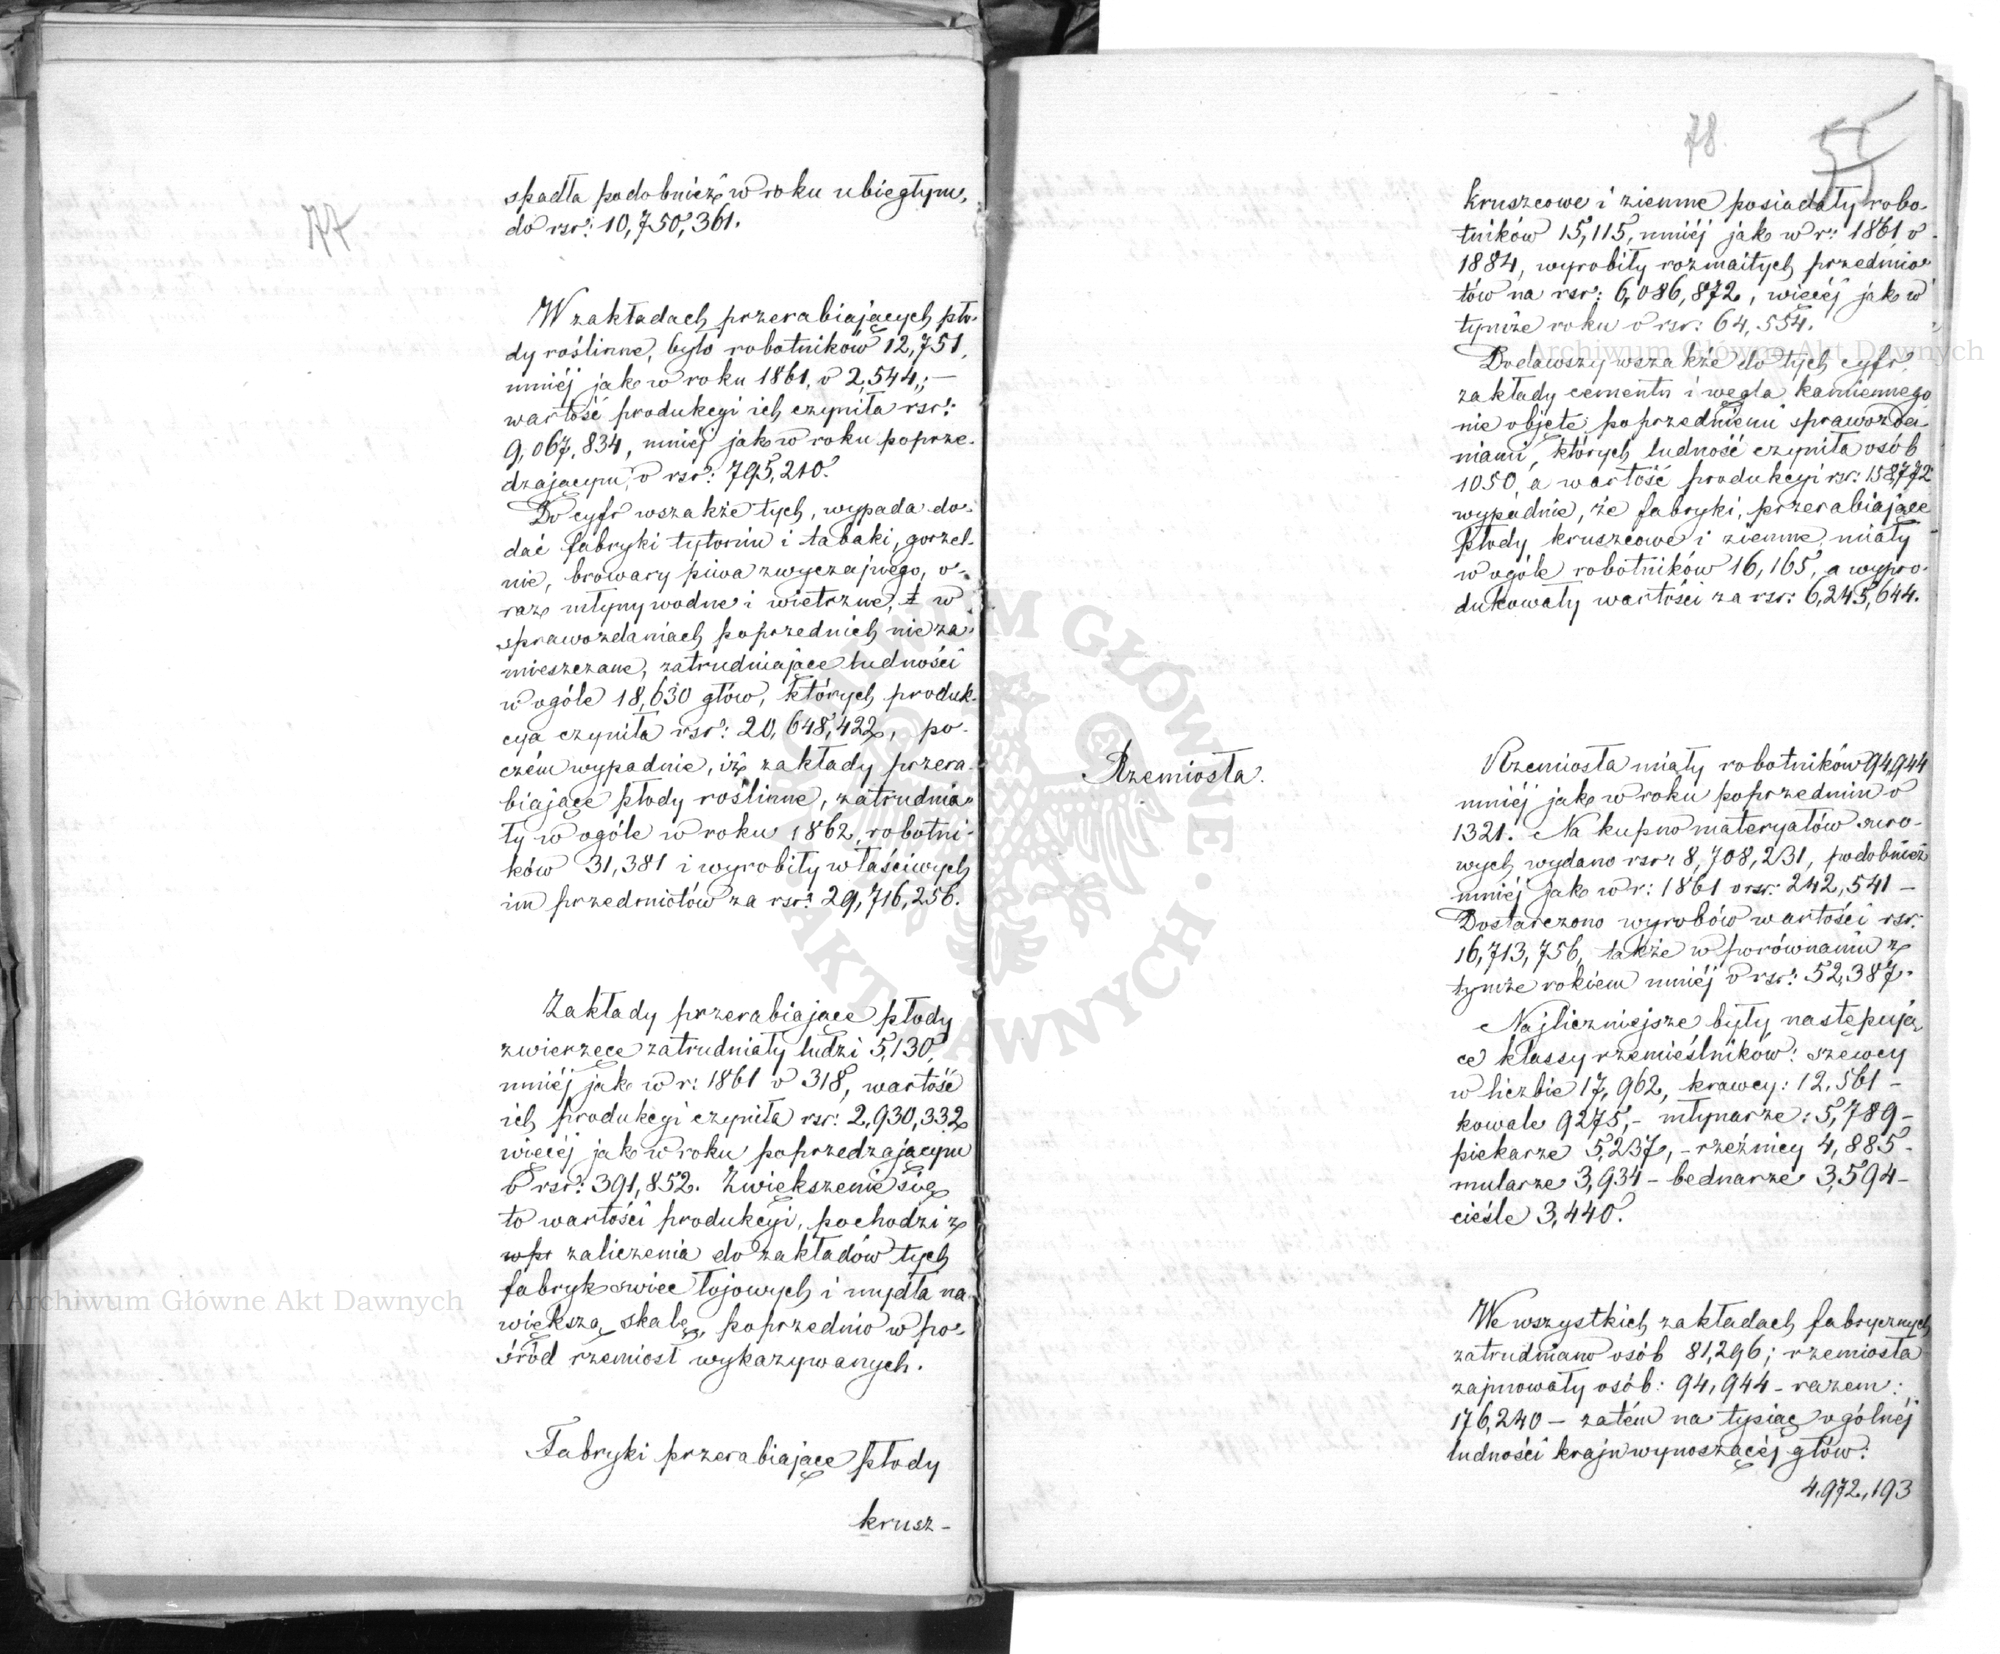 77
spadła podobnież w roku ubiegłym,
do rsr: 10,750,361.
W zakładach przerabiających pło-
dy roślinne, było robotników 12,751,
mniéj jak w roku 1861, o 2,544; —
wartość produkcyi ich czyniła rsr:
9,067,834, mniéj jak w roku poprze-
dzającym, o rsr: 795,210.
Do cyfr wszakże tych, wypada do-
dać fabryki tytoniu i tabaki, gorzel-
nie, browary piwa zwyczajnego, o-
raz młyny wodne i wietrzne, w
sprawozdaniach poprzednich nie za-
mieszczane, zatrudniające ludności
w ogóle 18,630 głów, których produk-
cya czyniła rsr: 20,648,422, po-
czém wypadnie, iż zakłady przera-
biające płody roślinne, zatrudnia-
ły w ogóle w roku 1862, robotni-
ków 31,381 i wyrobiły właściwych
im przedmiotów za rsr: 29,716,256.
Zakłady przerabiające płody
zwierzęce zatrudniały ludzi 5,130,
mniéj jak w r: 1861 o 318, wartość
ich produkcyi czyniła rsr: 2,930,332
więcéj jak w roku poprzedzającym
o rsr: 391,852. Zwiększenie się
to wartości produkcyi, pochodzi z
wpr zaliczenia do zakładów tych
fabryk świec łojowych i mydła na
większą skalę, poprzednio w po-
śród rzemiosł wykazywanych.
Fabryki przerabiające płody
krusz-
78.
55
kruszcowe i ziemne posiadały robo-
tników 15,115, mniéj jak w r: 1861 o
1884, wyrobiły rozmaitych przedmio-
tów na rsr: 6,086,872, więcéj jak w
tymże roku o rsr: 64,554.
Dodawszy wszakże do tych cyfr,
zakłady cementu i węgla kamiennego
nie objęte poprzedniemi sprawozda-
niami, których ludność czyniła osób
1050, a wartość produkcyi rsr: 158,772
wypadnie, że fabryki, przerabiające
płody kruszcowe i ziemne, miały
w ogóle robotników 16,165, a wypro-
dukowały wartości za rsr: 6,245,644.
Rzemiosła.
Rzemiosła miały robotników 94,944
mniéj jak w roku poprzednim o
1321. Na kupno materyałów suro-
wych wydano rsr: 8,708,231, podobnież
mniéj jak w r: 1861 o rsr: 242,541 —
Dostarczono wyrobów wartości rsr:
16,713,756, także w porównaniu z
tymże rokiem mniéj o rsr: 52,387.
Najliczniejsze były następują-
ce klassy rzemieślników: szewcy
w liczbie 17,962, krawcy: 12,561 —
kowale 9275, — młynarze: 5,789 —
piekarze 5,237, — rzeźnicy 4,885 —
mularze 3,934 — bednarze 3,594 —
cieśle 3,440.
We wszystkich zakładach fabrycznych
zatrudniano osób 81,296; rzemiosła
zajmowały osób: 94,944 — razem:
176,240 — zatém na tysiąc ogólnéj
ludności kraju wynoszącéj głów:
4,972,193
Archiwum Główne Akt Dawnych
Archiwum Główne Akt Dawnych
ARCHIWUM GŁÓWNE • AKT DAWNYCH •